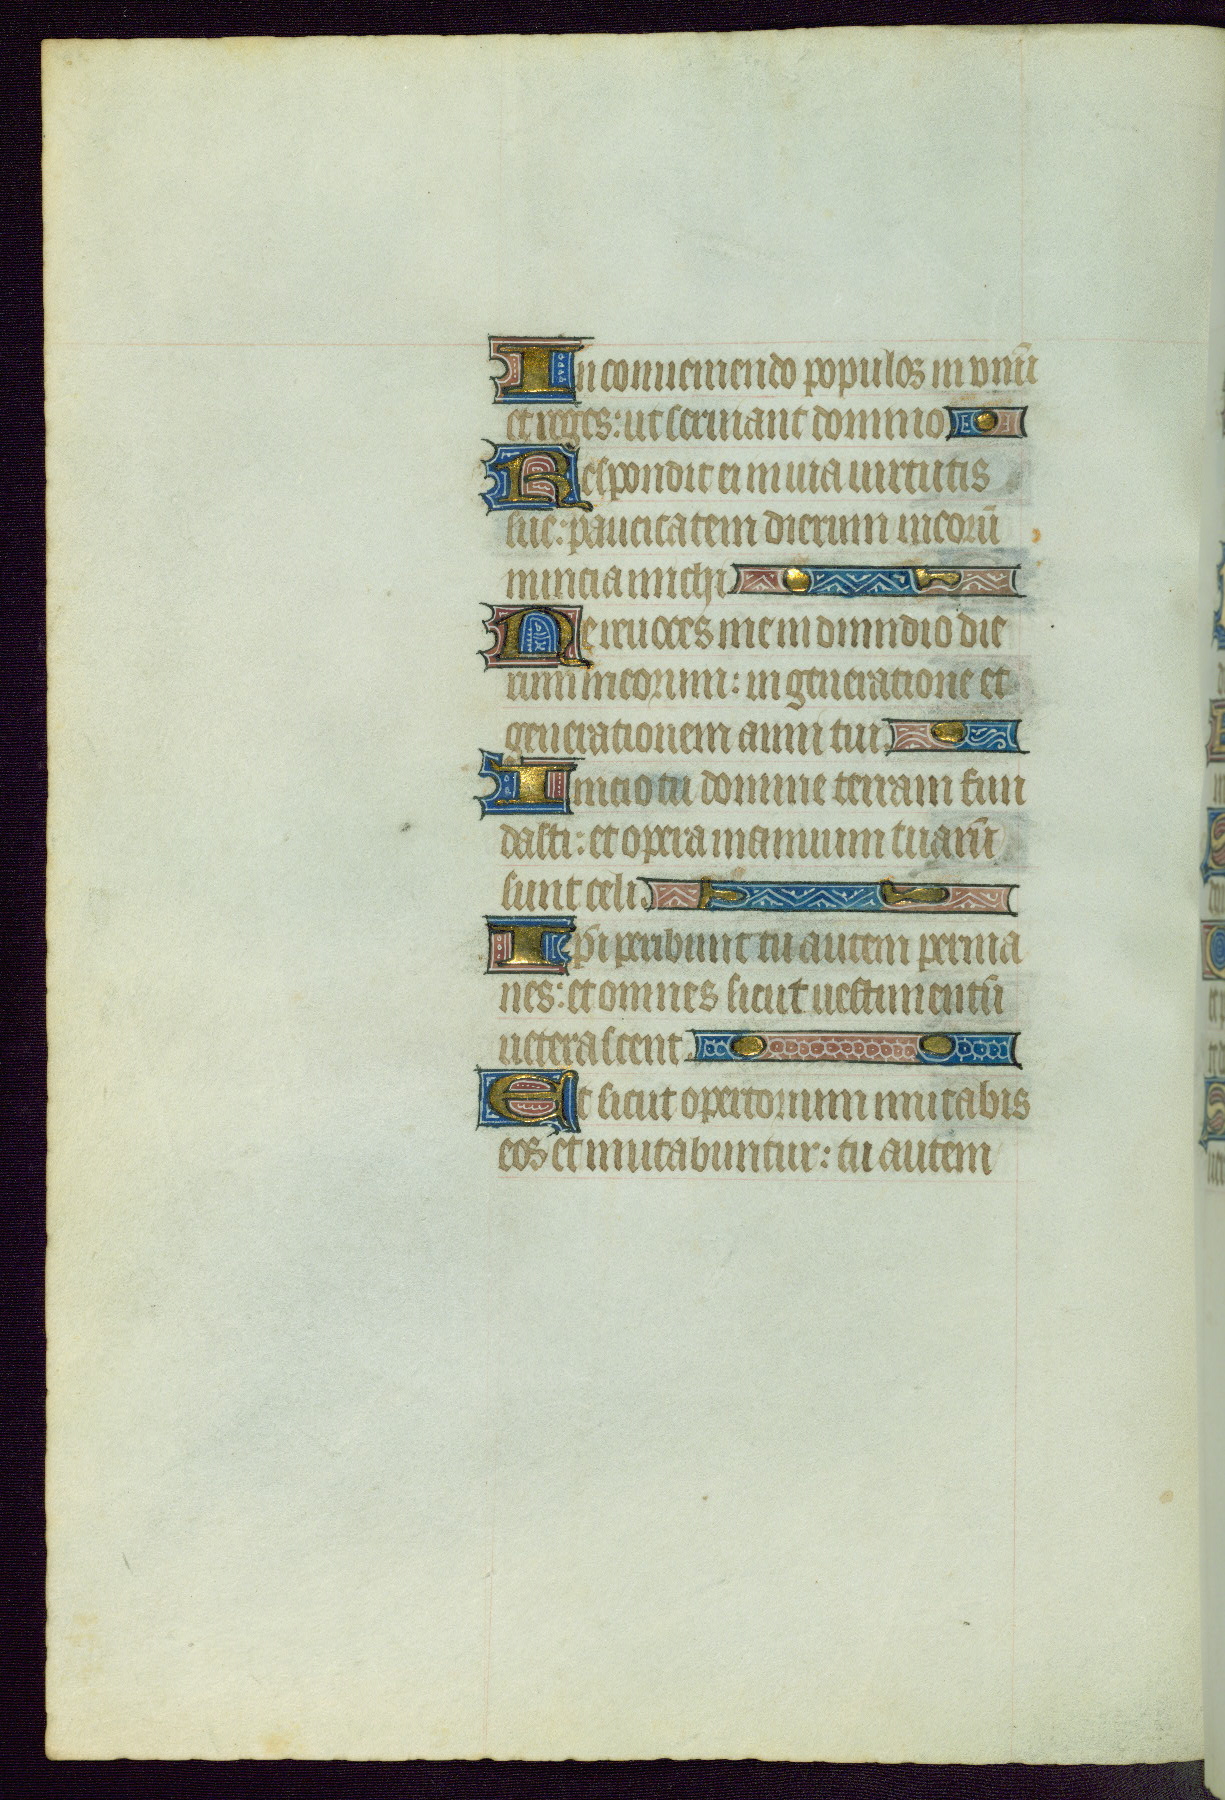 In conueniendo populos in vnū
et reges: ut seruiant domino
Respondit ei in uia uirtutis
sue: paucitatem dierum meorū
nuncia michi
Ne reuoces me in dimidio die
rum meorum: in generatione et
generationem anni tui
Inicio tu domine terram fun
dasti: et opera manuum tuarū
sunt celi
Ipī peribunt tu autem perma
nes: et omnes sicut uestimentū
ueterascent
Et sicut opertorium mutabis
eos et mutabuntur: tu autem